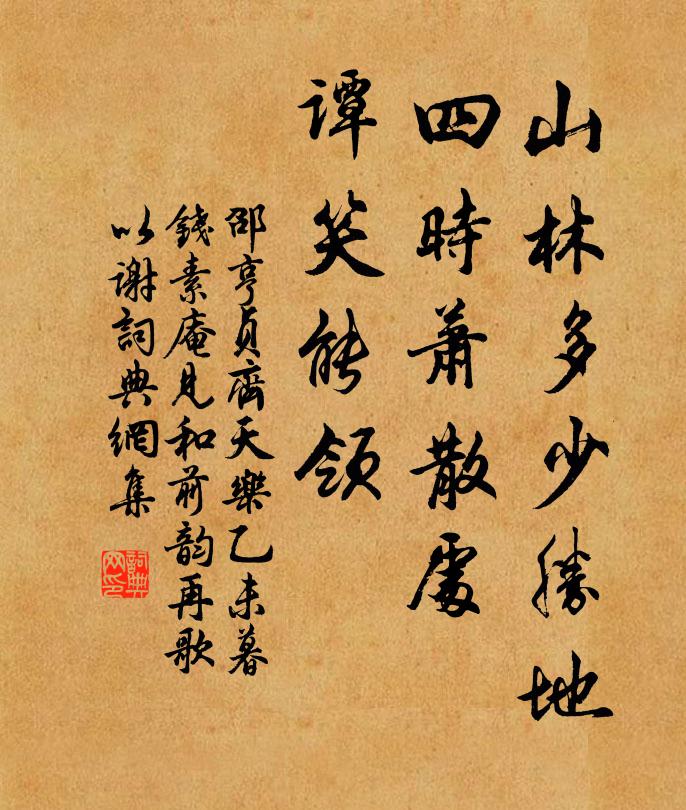 山林多少勝地
四時蕭散處
譚笑能領
邵亨貞齊天樂乙未暮
錢素庵見和前韵再歌
以謝詞典網集
詞典网印